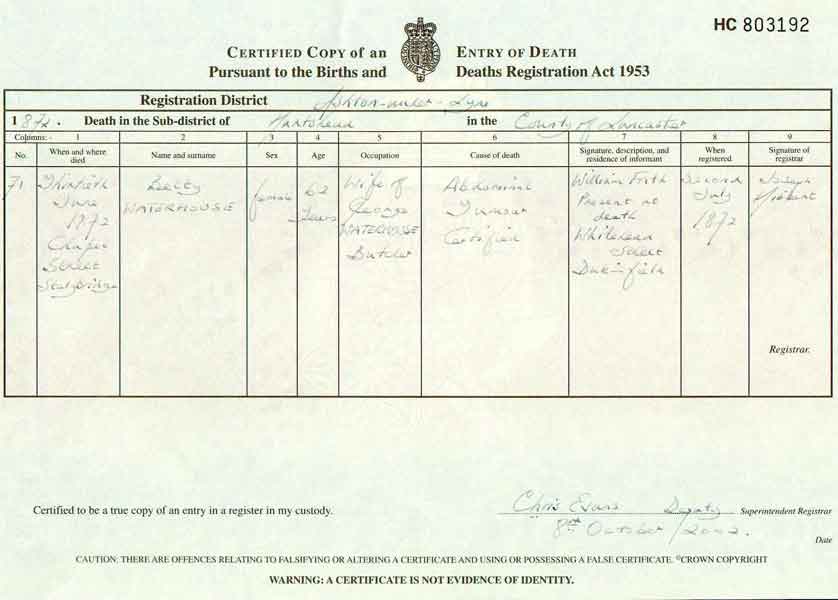 HC 803192
CERTIFIED COPY OF AN ENTRY OF DEATH
Pursuant to the Births and Deaths Registration Act 1953
Registration District Ashton-under-Lyne
1872. Death in the Sub-district of Hartshead in the County of Lancaster
Columns:- 1 2 3 4 5 6 7 8 9
No. When and where died Name and surname Sex Age Occupation Cause of death Signature, description, and residence of informant When registered Signature of registrar
71
Thirtieth
June
1872
Street
Stalybridge
Betty
WATERHOUSE
female
62
Years
Wife of
George
WATERHOUSE
Butcher
Abdominal
Tumour
Certified
William Frith
Present at
death
Whitehead
Street
Dukinfield
Second
July
1872
Joseph
Registrar.
Certified to be a true copy of an entry in a register in my custody.
Chris Evans Deputy Superintendent Registrar
8th October 2002. Date
CAUTION: THERE ARE OFFENCES RELATING TO FALSIFYING OR ALTERING A CERTIFICATE AND USING OR POSSESSING A FALSE CERTIFICATE. ©CROWN COPYRIGHT
WARNING: A CERTIFICATE IS NOT EVIDENCE OF IDENTITY.